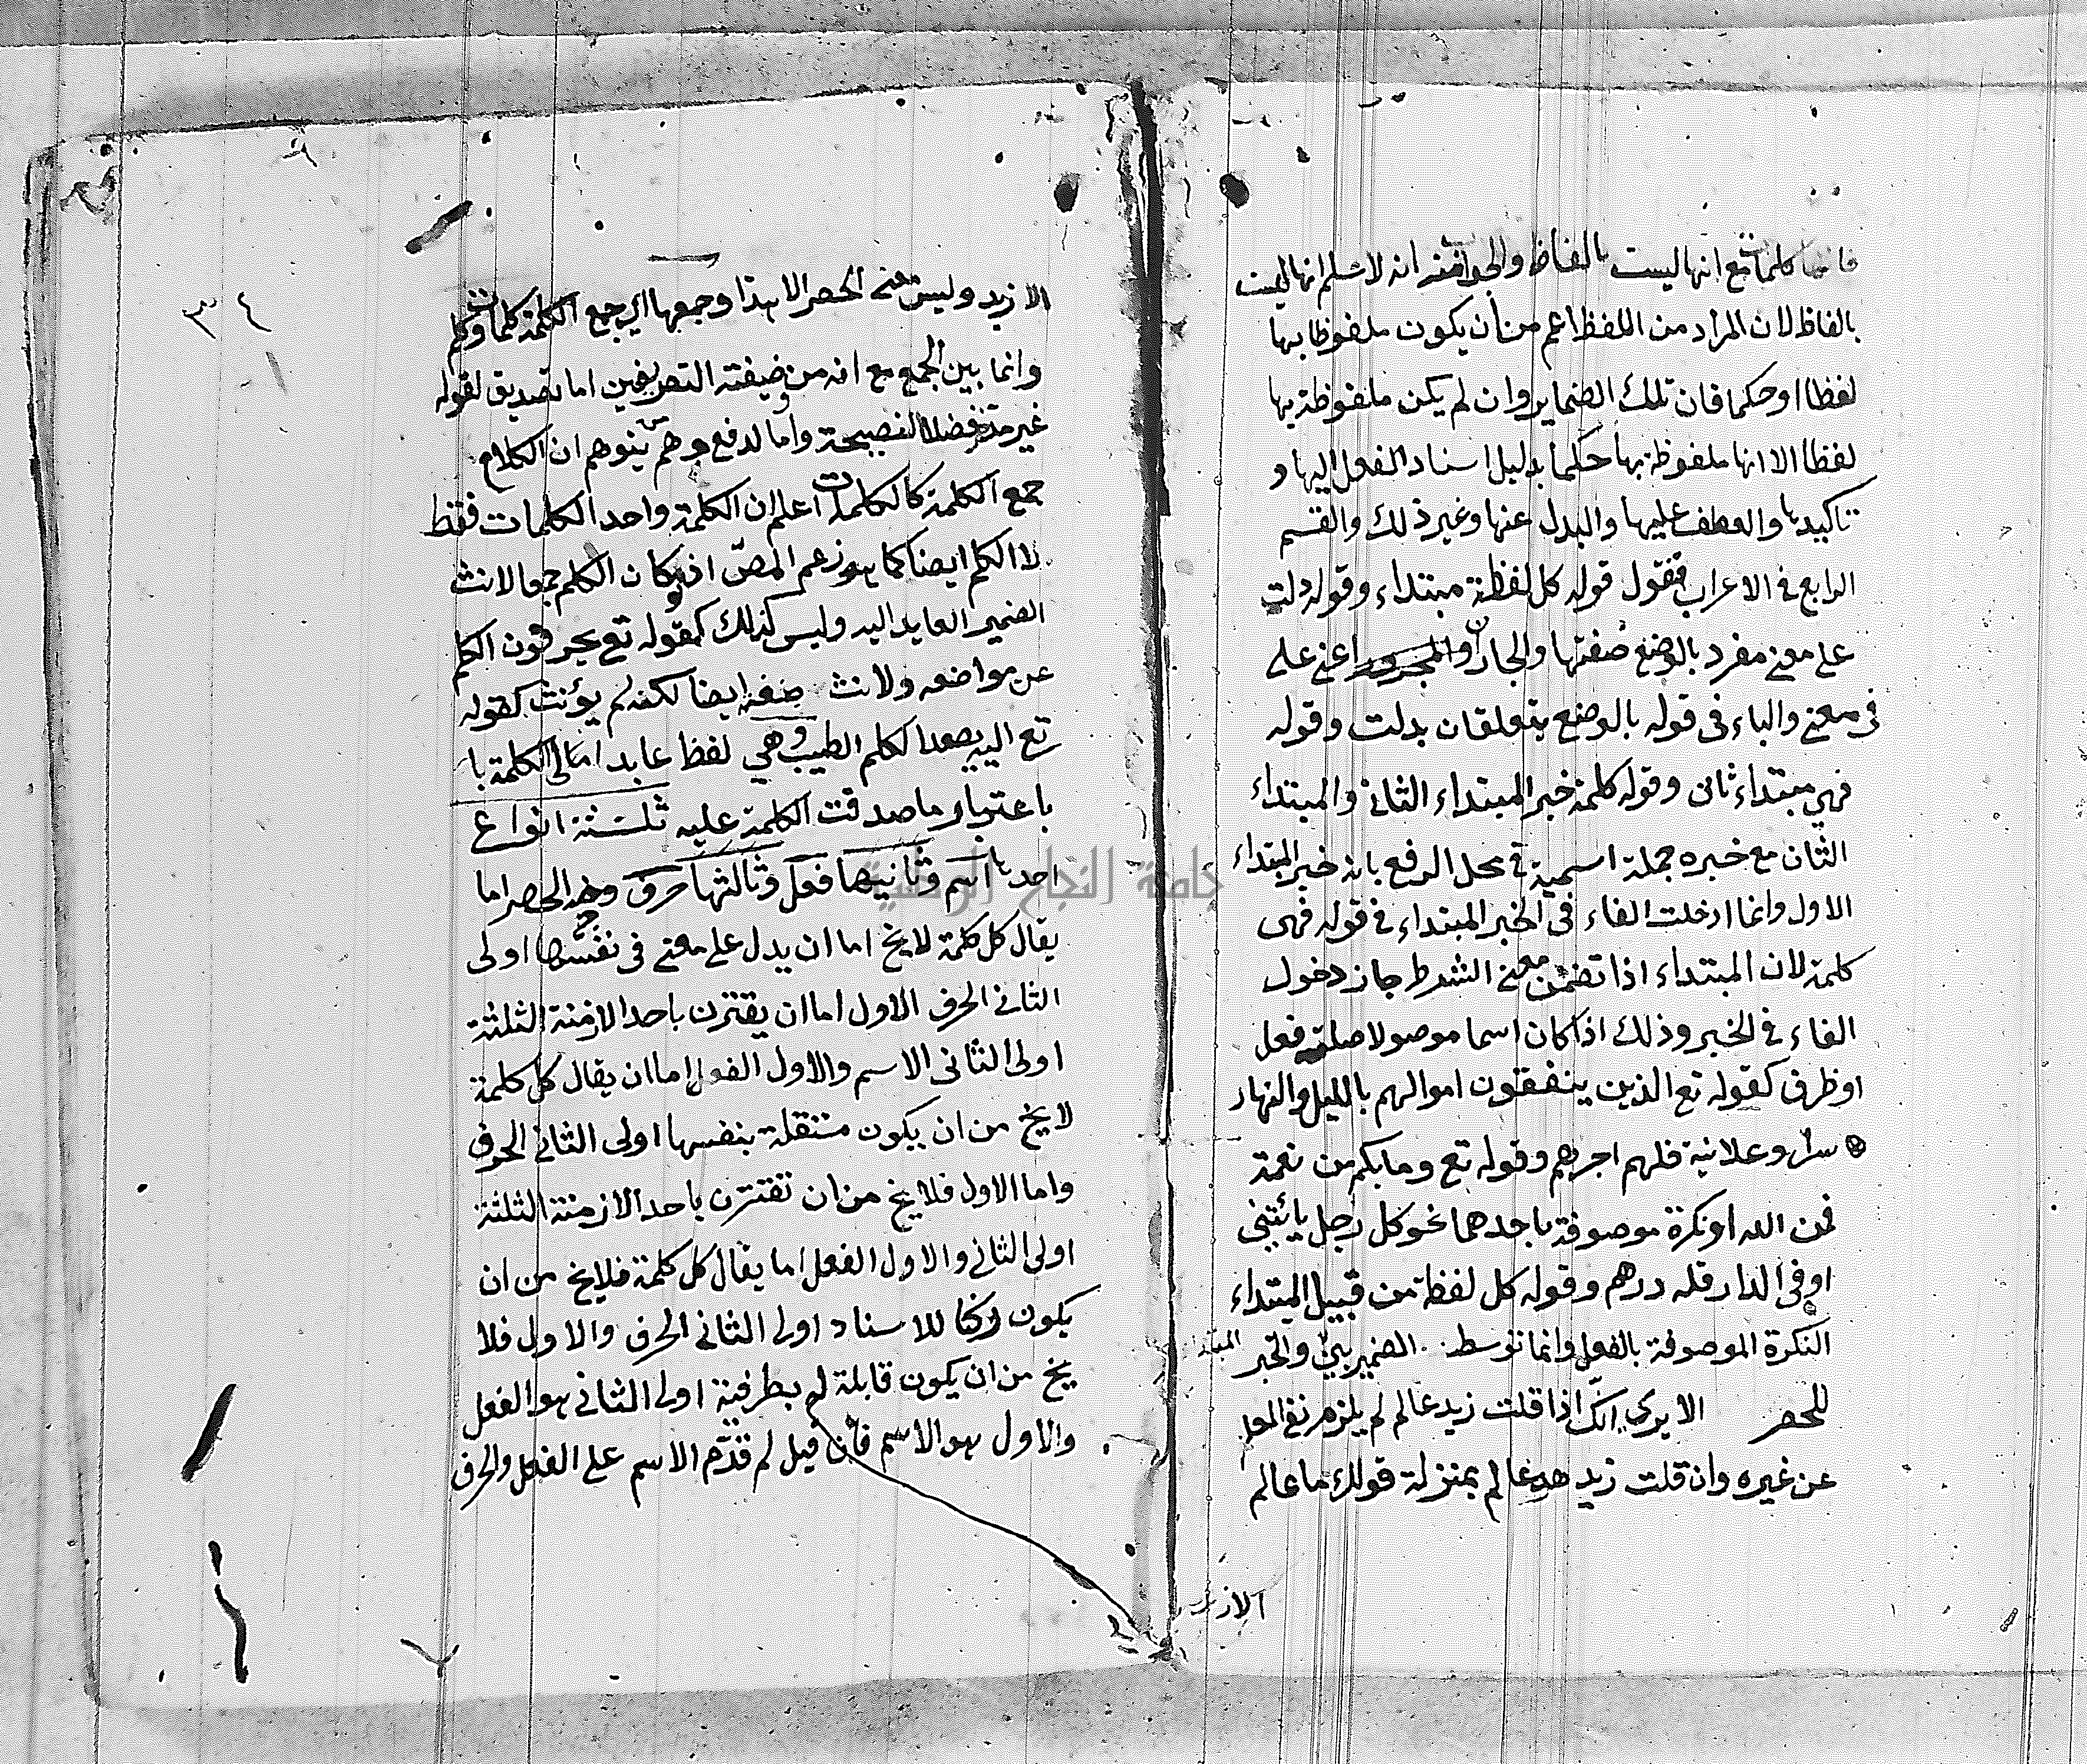 فانها كلمات مع انها ليست بالفاظ والجواب منه انه لا نسلم انها ليست
بالفاظ لان المراد من اللفظ اعم من أن يكون ملفوظا بها
لفظا او حكما فان تلك الضماير وان لم يكن ملفوظة بها
لفظا الا انها ملفوظة بها حكما بدليل اسناد الفعل اليها و
تاكيدها والعطف عليها والبدل عنها وغير ذلك والقسم
الرابع في الاعراب فنقول قوله كل لفظة مبتداء وقوله دلت
على معنى مفرد بالوضع صفتها والجاران اعنى على
في معنى والباء في قوله بالوضع يتعلقان بدلت وقوله
فهي مبتداء ثان وقوله كلمة خبر المبتداء الثاني والمبتداء
الثان مع خبره جملة اسمية في محل الرفع بانه خبر المبتداء
الاول وانما ادخلت الفاء في الخبر المبتداء في قوله فهي
كلمة لان المبتداء اذا تضمن معنى الشرط جاز دخول
الفاء في الخبر وذلك اذا كان اسما موصولا صلته فعل
او ظرف كقوله تع الذين ينفقون اموالهم بالليل والنهار
سرا وعلانية فلهم اجرهم وقوله تع وما بكم من نعمة
فمن الله او نكرة موصوفة باحدهما نحو كل رجل يأتيني
او في الدار فله درهم وقوله كل لفظة من قبيل المبتداء
النكرة الموصوفة بالفعل وانما توسط الضمير بين والخبر
للحصر الا يرى انك اذا قلت زيد عالم لم يلزم نفي العلم
عن غيره وان قلت زيد هو عالم بمنزلة قولك ما عالم
الازيد
جامعة النجاح الوطنية
٣٤
الا زيد وليس معنى الحصر الا هذا وجمعها اي جمع الكلمة كلمات وكلم
وانما بين الجمع مع انه من وضيفته التصريفين اما تصديق لقوله
غير مرة فضلا النصيحة واما لدفع وهم يتوهم ان الكلام
جمع الكلمة كالكلمات اعلم ان الكلمة واحد الكلمات فقط
لا الكلم ايضا كما هو زعم المص اذ لو كان الكلم جمعا لانث
الضمير العايد اليه وليس كذلك كقوله تع يحرفون الكلم
عن مواضعه ولانث صفته ايضا لكنه لم يؤنث كقوله
تع اليه يصعد الكلم الطيب وهي لفظ عايد الى الكلمة با
باعتبار ما صدقت الكلمة عليه ثلثة انواع
احدها اسم وثانيها فعل وثالثها حرف وجه الحصر اما
يقال كل كلمة لايخ اما ان يدل على معنى في نفسها اولى
الثاني الحرف الاول اما ان يقترن باحد الازمنة الثلثة
اولى الثاني الاسم والاول الفعل اما ان يقال كل كلمة
لايخ من ان يكون مستقلة بنفسها اولى الثاني الحرف
واما الاول فلايخ من ان تقترن باحد الازمنة الثلثة
اولى الثاني والاول الفعل اما يقال كل كلمة فلايخ من ان
يكون ركنا للاسناد اولى الثاني الحرف والاول فلا
يخ من ان يكون قابلة لم بطرفية اولى الثاني هو الفعل
والاول هو الاسم فان قيل لم قدم الاسم على الفعل والحرف